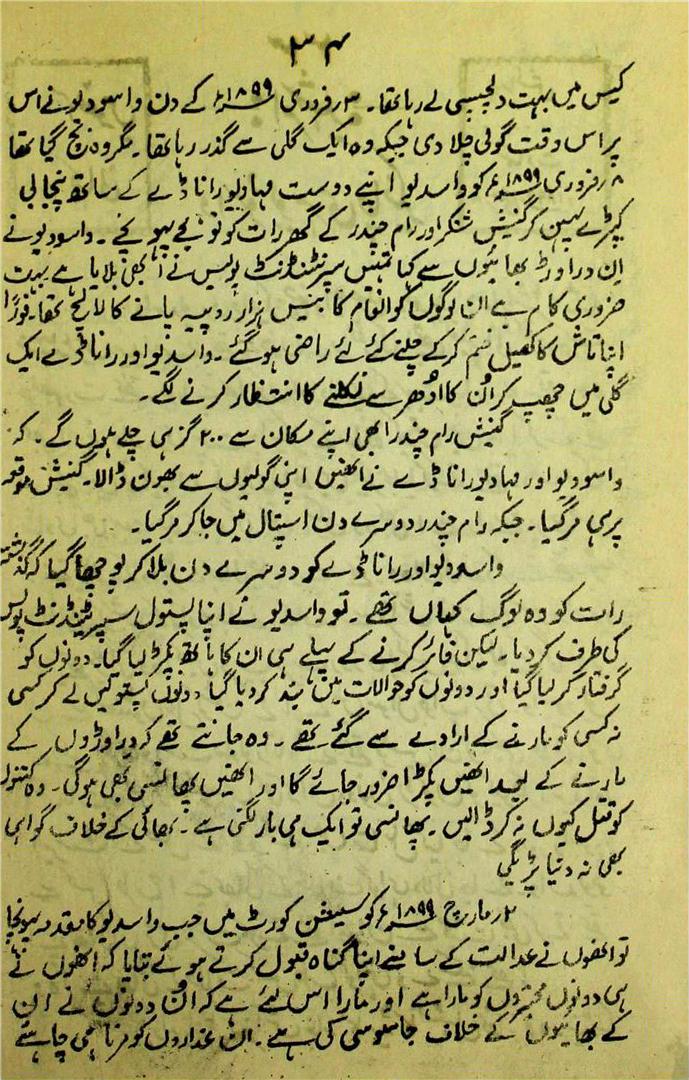 ۳۴
کیس میں بہت دلچسپی لے رہا تھا۔ ۳؍فروری ۱۸۹۹ء کے دن واسودیو نے اس
پر اس وقت گولی چلا دی جبکہ وہ ایک گلی سے گذر رہا تھا۔ مگر وہ بچ گیا تھا
۸؍فروری ۱۸۹۹ء کو واسدیو اپنے دوست مہادیو راناڈے کے ساتھ پنجابی
کپڑے پہن کر گنیش شنکر اور رام چندر کے گھر رات کو نو بجے پہونچے۔ واسودیو نے
ان دراوڑ بھائیوں سے کہا تمہیں سپرنٹنڈنٹ پولیس نے ابھی بلایا ہے بہت
ضروری کام ہے ان لوگوں کو انعام کا بیس ہزار روپیہ پانے کا لالچ تھا۔ فوراً
اپنا تاش کا کھیل ختم کر کے چلنے کے لئے راضی ہو گئے۔ واسدیو اور راناڈے ایک
گلی میں چھپ کر اُن کا اُدھر سے نکلنے کا انتظار کرنے لگے۔
گنیش رام چندر ابھی اپنے مکان سے ۲۰۰ گز ہی چلے ہوں گے۔ کہ
واسودیو اور مہادیو راناڈے نے انھیں اپنی گولیوں سے بھون ڈالا۔ گنیش موقعہ
پر ہی مر گیا۔ جبکہ رام چندر دوسرے دن اسپتال میں جا کر مر گیا۔
واسودیو اور راناڈے کو دوسرے دن بلا کر پوچھا گیا کہ گذشتہ
رات کو وہ لوگ کہاں تھے۔ تو واسدیو نے اپنا پستول سپرنٹنڈنٹ پولس
کی طرف کر دیا۔ لیکن فائر کرنے کے پہلے ہی ان کا ہاتھ پکڑ لیا گیا۔ دونوں کو
گرفتار کر لیا گیا اور دونوں کو حوالات میں بند کر دیا گیا۔ دونوں پستولیں لے کر کسی
نہ کسی کو مارنے کے ارادے سے گئے تھے۔ وہ جانتے تھے کہ دراوڑوں کے
مارنے کے بعد انھیں پکڑا ضرور جائے گا اور انھیں پھانسی بھی ہوگی۔ وہ کتنوں
کو قتل کیوں نہ کر ڈالیں۔ پھانسی تو ایک ہی بار لگنی ہے۔ بھائی کے خلاف گواہی
بھی نہ دینا پڑیگی
۲؍مارچ ۱۸۹۹ء کو سیشن کورٹ میں جب واسدیو کا مقدمہ پہونچا
تو انھوں نے عدالت کے سامنے اپنا گناہ قبول کرتے ہوئے بتایا کہ انھوں نے
ہی دونوں مخبروں کو مارا ہے اور مارا اس لئے ہے کہ اُن دونوں نے ان
کے بھائیوں کے خلاف جاسوسی کی ہے۔ ان غداروں کو مرنا ہی چاہئے